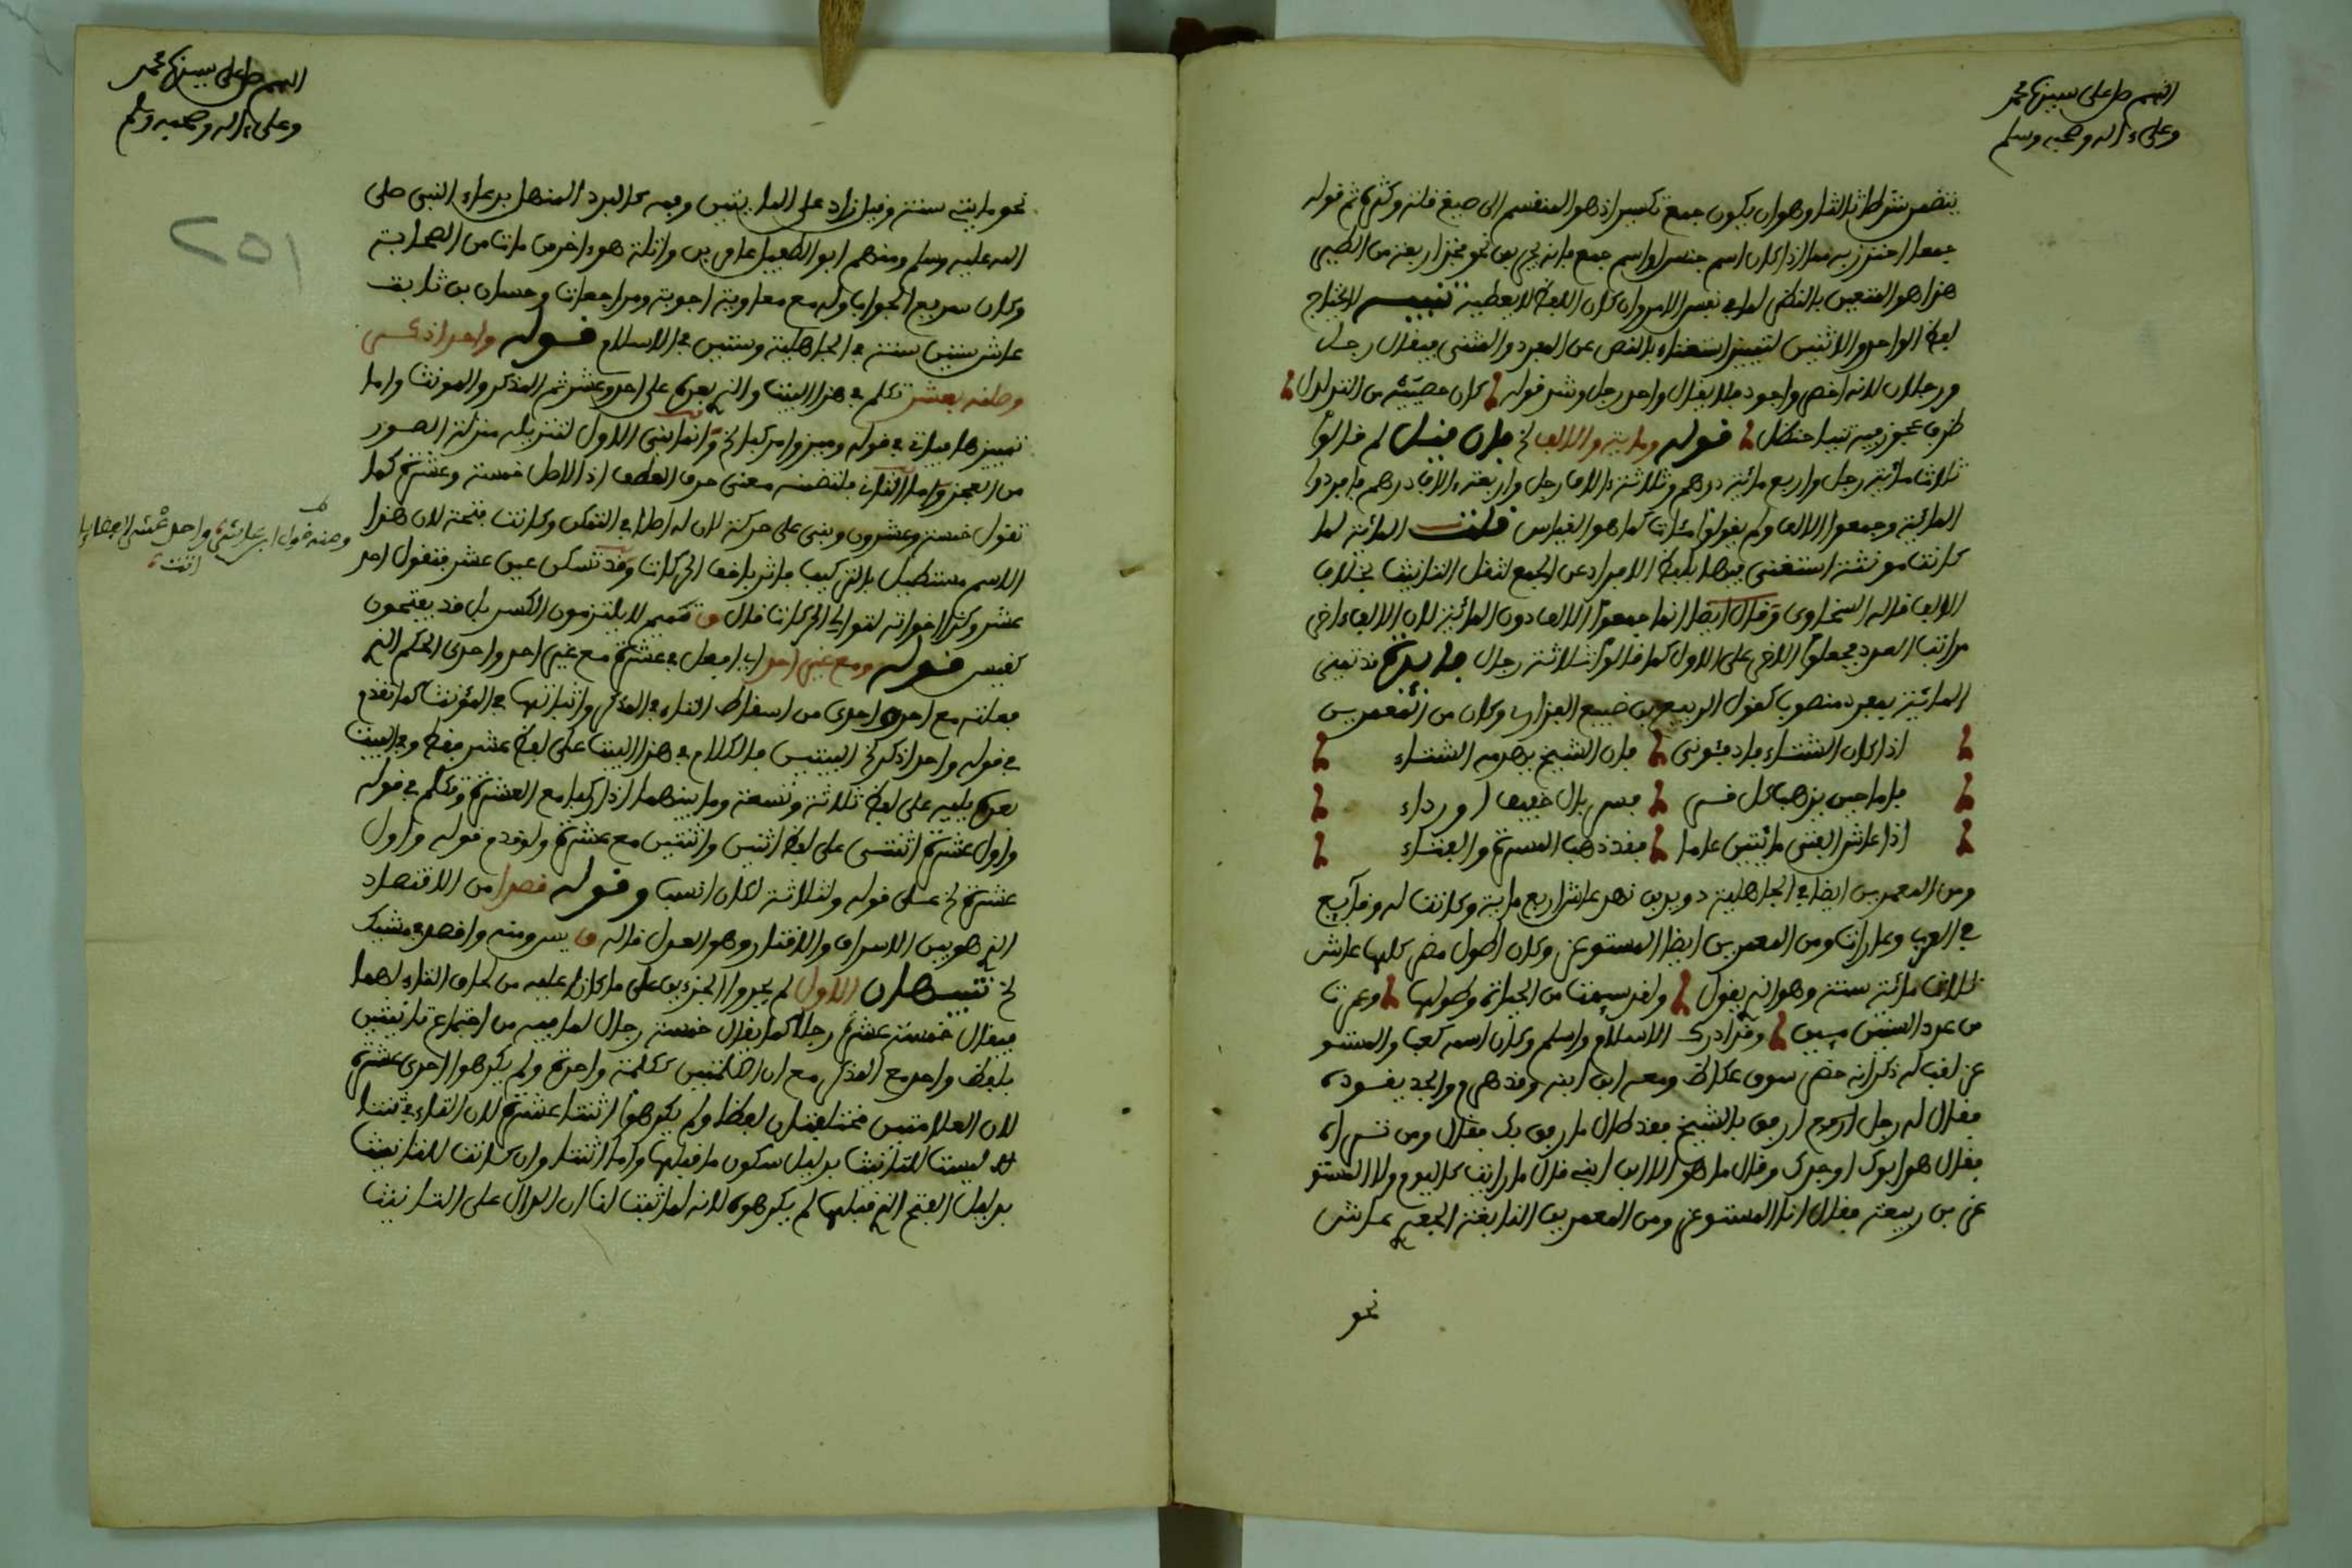 اللهم صل على سيدنا محمد
وعلى ءاله وصحبه وسلم
يتضمن شرطا ثالثا وهو ان يكون جمع تكسير اذ هو المنقسم الى صيغ قلة وكثرة ثم قوله
جمعا احترز به مما اذا كان اسم جنس او اسم جمع فانه يجر بمن نحو فخذ اربعة من الطير
هذا هو المتعين بالنظر لما في نفس الامر وان كان اللفظ لا يعطيه تنبيه لا يحتاج
لفظ الواحد والاثنين لتمييز استغناء بالنص عن المفرد والمثنى فيقال رجل
ورجلان لانه اخصر واجود فلا يقال واحد رجل وشذ قوله كان خصييه من التدلدل
ظرف عجوز فيه ثنتا حنظل قوله ومائة والالف لخ فان قيل لم قالوا
ثلاث مائة رجل واربع مائة درهم وثلاثة ءالاف رجل واربعة ءالاف درهم فافردوا
المائة وجمعوا الالف ولم يقولوا مئات كما هو القياس قلت المائة لما
كانت مونثة استغنى فيها بلفظ الافراد عن الجمع لثقل التانيث بخلاف
الالف قاله السخاوى وقال ايضا انما جمعوا الالف دون المائة لان الالف ءاخر
مراتب العدد فحملوا الاخر على الاول كما قالوا ثلاثة رجال فايدة قد تميز
المائة بمفرد منصوب كقول الربيع بن ضبيع الفزارى وكان من المعمرين
اذا كان الشتاء فادفئونى فان الشيخ يهرمه الشتاء
فاما حين يذهب كل قر فسربال خفيف او رداء
اذا عاش الفتى مائتين عاما فقد ذهب المسرة والفتاء
ومن المعمرين ايضا في الجاهلية دويد بن نهد عاش اربع مائة وكانت له وقايع
في العرب وغارات ومن المعمرين ايضا المستوغر وكان اطول مضر كلها عاش
ثلاث مائة سنة وهو الذى يقول ولقد سيمت من الحياة وطولها وعمرت
من عدد السنين ميين وقد ادرك الاسلام واسلم وكان اسمه كعبا والمستو
غر لقب له ذكر انه حضر سوق عكاظ ومعه ابن ابنه وقد هرم والجد يقوده
فقال له رجل ارفق بالشيخ فقد طال ما رفق بك فقال ومن تراه
فقال هو ابوك او جدك وقال ما هو الا ابن ابنى قال ما رايت كاليوم ولا المستو
غر بن ربيعة فقال انا المستوغر ومن المعمرين النابغة الجعدى عاش
نحو
اللهم صل على سيدنا محمد
وعلى ءاله وصحبه وسلم
٢٥١
نحو مايتى سنة وقيل زاد على المايتين وفمه كالبرد المنهل بدعاء النبى صلى
الله عليه وسلم ومنهم ابو الطفيل عامر بن واثلة هو ءاخر من مات من الصحابة
وكان سريع الجواب وله مع معاوية اجوبة ومراجعات وحسان بن ثابت
عاش ستين سنة في الجاهلية وستين في الاسلام قوله واحد اذكر
وصلنه بعشر تكلم في هذا البيت والذى بعده على احد وعشر ثم المذكر والمونث واما
تمييزها فياتى في قوله وميزوا مركبا لخ وانما بنى الاول لتنزيله منزلة الصدر
من العجز واما الثانى فلتضمنه معنى حرف العطف اذ الاصل خمسة وعشرة كما
تقول خمسة وعشرون وبنى على حركة لان له اصلا في التمكن وكانت فتحة لان هذا
الاسم مستطيل بالتركيب فاثر باخف الحركات وقد تسكن عين عشر فتقول احد
عشر وكذا اخواته لتوالى الحركات قال ق تميم لا يلتزمون الكسر بل قد يفتحون
كقيس قوله ومع غير احد اى افعل في عشرة مع غير احد واحدى الحكم الذى
فعلته مع احد واحدى من اسقاط التاء في المذكر واثباتها في المؤنث كما تقدم
في قوله واحد اذكر لخ البيتين فالكلام في هذا البيت على لفظ عشر فقط وفي البيت
بعده يليه على لفظ ثلاثة وتسعة وما بينهما اذا ركبا مع العشرة وتكلم في قوله
واول عشرة اثنتى على لفظ اثنين واثنتين مع عشرة ولو قدم قوله واول
عشرة لخ على قوله ولثلاثة لكان انسب وقوله قصدا من الاقتصاد
الذى هو بين الاسراف والاقتار وهو العدل قاله ق س ومنه واقصد في مشيك
لخ تنبيهان الاول لم يجروا الجزءين على ما كانا عليه من لحاق التاء لهما
فيقال خمسة عشرة رجلا كما يقال خمسة رجال لما فيه من اجتماع تانيثين
بلفظ واحد مع المذكر مع ان الكلمتين ككلمة واحدة ولم يكرهوا احدى عشرة
لان العلامتين مختلفتان لفظا ولم يكرهوا اثنتا عشرة لان التاء في ثنتا
ليست للتانيث بدليل سكون ما قبلها وكذا اثنتا وان كانت للتانيث
بدليل الفتح الذى قبلها لم يكرهوه لانه لما ثبت لنا ان الدال على التانيث
ومنه قول ابن عاشر واحد عشر
انتهى